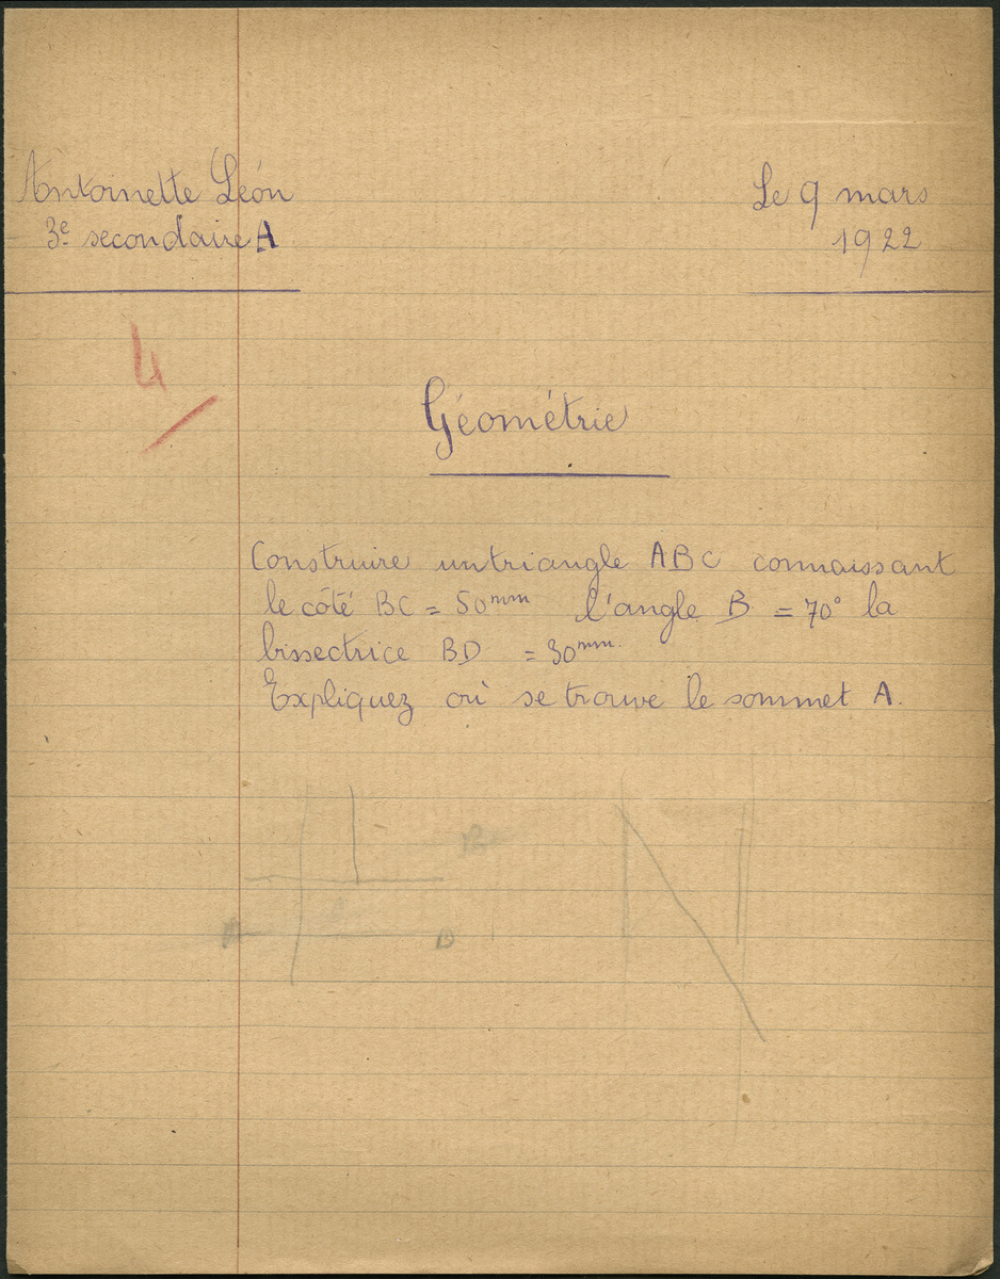 Antoinette Léon
Le 9 mars
3e secondaire A
1922
4
Géométrie
Construire un triangle ABC connaissant
le côté BC = 50mm l'angle B = 70° la
bissectrice BD = 30mm.
Expliquez où se trouve le sommet A.
B
A
B